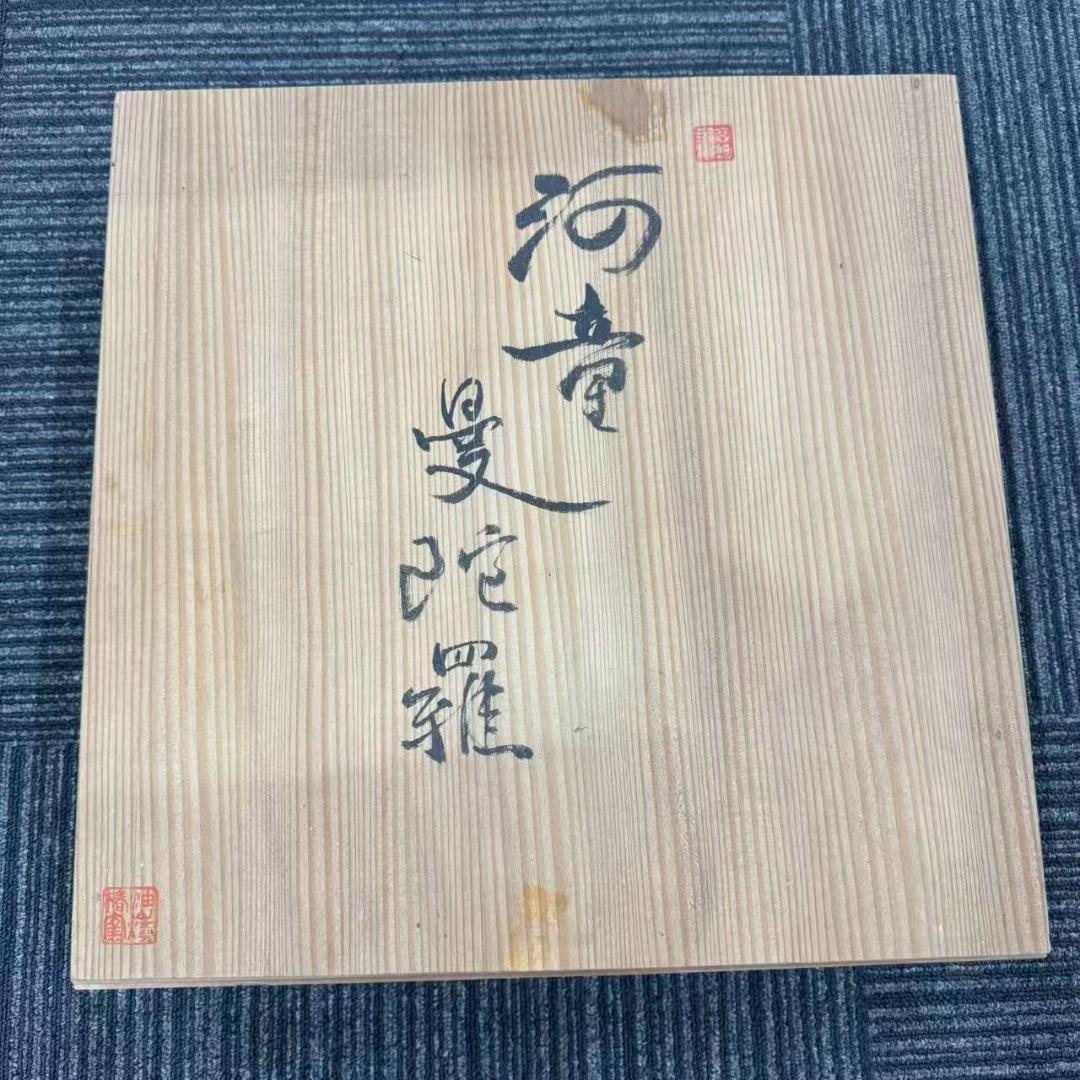 河童
曼陀羅